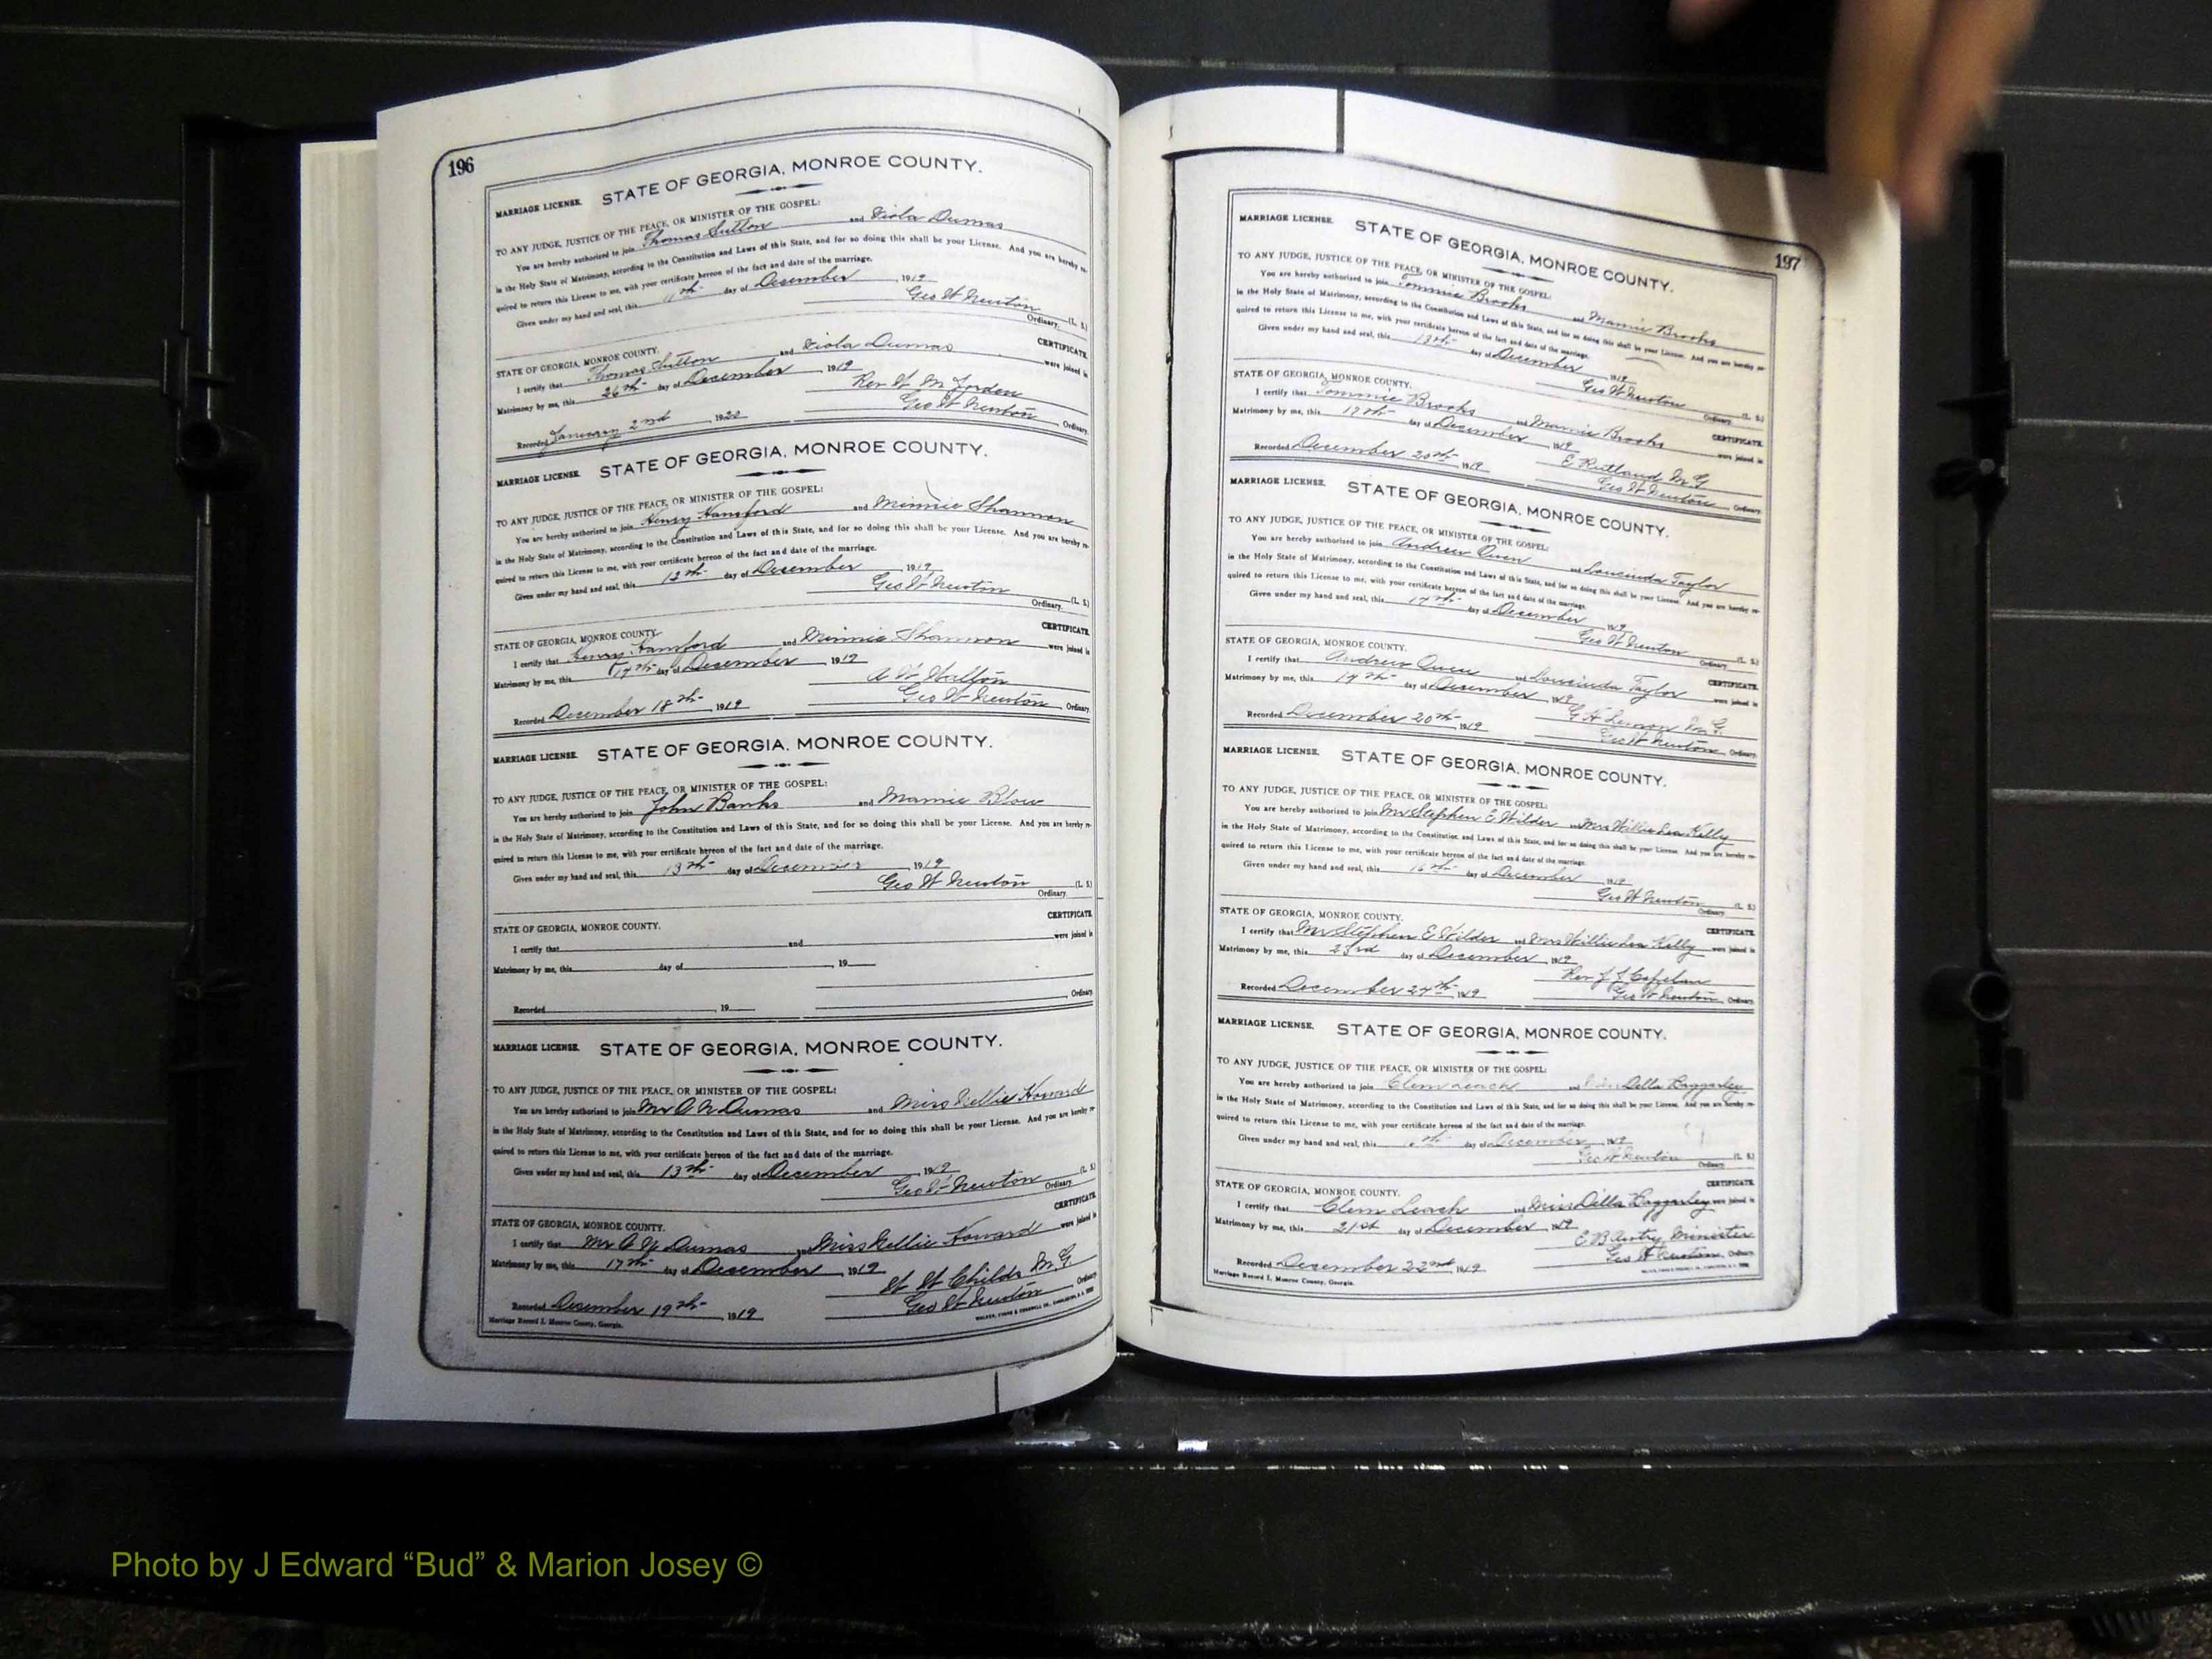 196
MARRIAGE LICENSE. STATE OF GEORGIA, MONROE COUNTY.
TO ANY JUDGE, JUSTICE OF THE PEACE, OR MINISTER OF THE GOSPEL:
You are hereby authorized to join Thomas Sutton and Viola Dumas
in the Holy State of Matrimony, according to the Constitution and Laws of this State, and for so doing this shall be your License. And you are hereby re-
quired to return this License to me, with your certificate hereon of the fact and date of the marriage.
Given under my hand and seal, this 11th day of December, 1919
Geo W Newton (L. S.)
Ordinary.
STATE OF GEORGIA, MONROE COUNTY. CERTIFICATE.
I certify that Thomas Sutton and Viola Dumas were joined in
Matrimony by me, this 26th day of December, 1919
Rev W M Jorden
Recorded January 2nd 1920 Geo W Newton Ordinary.
MARRIAGE LICENSE. STATE OF GEORGIA, MONROE COUNTY.
TO ANY JUDGE, JUSTICE OF THE PEACE, OR MINISTER OF THE GOSPEL:
You are hereby authorized to join Henry Hansford and Minnie Shannon
in the Holy State of Matrimony, according to the Constitution and Laws of this State, and for so doing this shall be your License. And you are hereby re-
quired to return this License to me, with your certificate hereon of the fact and date of the marriage.
Given under my hand and seal, this day of December, 1919
Geo W Newton (L. S.)
Ordinary.
STATE OF GEORGIA, MONROE COUNTY. CERTIFICATE.
I certify that Henry Hansford and Minnie Shannon were joined in
Matrimony by me, this 17th day of December, 1919
A W Walton
Recorded December 18th 1919 Geo W Newton Ordinary.
MARRIAGE LICENSE. STATE OF GEORGIA, MONROE COUNTY.
TO ANY JUDGE, JUSTICE OF THE PEACE, OR MINISTER OF THE GOSPEL:
You are hereby authorized to join John Banks and Mamie Blow
in the Holy State of Matrimony, according to the Constitution and Laws of this State, and for so doing this shall be your License. And you are hereby re-
quired to return this License to me, with your certificate hereon of the fact and date of the marriage.
Given under my hand and seal, this 13th day of December, 1919
Geo W Newton (L. S.)
Ordinary.
STATE OF GEORGIA, MONROE COUNTY. CERTIFICATE.
I certify that and were joined in
Matrimony by me, this day of , 19
Recorded , 19 , Ordinary.
MARRIAGE LICENSE. STATE OF GEORGIA, MONROE COUNTY.
TO ANY JUDGE, JUSTICE OF THE PEACE, OR MINISTER OF THE GOSPEL:
You are hereby authorized to join Mr Dumas and Miss Nellie Howard
in the Holy State of Matrimony, according to the Constitution and Laws of this State, and for so doing this shall be your License. And you are hereby re-
quired to return this License to me, with your certificate hereon of the fact and date of the marriage.
Given under my hand and seal, this 13th day of December, 1919
Geo W Newton (L. S.)
Ordinary.
STATE OF GEORGIA, MONROE COUNTY. CERTIFICATE.
I certify that Mr Dumas and Miss Nellie Howard were joined in
Matrimony by me, this 17th day of December, 1919
W W Childs M.G.
Recorded December 19th, 1919 Geo W Newton Ordinary.
Marriage Record I, Monroe County, Georgia.
197
MARRIAGE LICENSE. STATE OF GEORGIA, MONROE COUNTY.
TO ANY JUDGE, JUSTICE OF THE PEACE, OR MINISTER OF THE GOSPEL:
You are hereby authorized to join Tommie Brooks and Mamie Brooks
in the Holy State of Matrimony, according to the Constitution and Laws of this State, and for so doing this shall be your License. And you are hereby re-
quired to return this License to me, with your certificate hereon of the fact and date of the marriage.
Given under my hand and seal, this 13th day of December, 1919
Geo W Newton (L. S.)
Ordinary.
STATE OF GEORGIA, MONROE COUNTY. CERTIFICATE.
I certify that Tommie Brooks and Mamie Brooks were joined in
Matrimony by me, this day of December, 1919
E Rutland M G
Recorded December 20th, 1919 Geo W Newton Ordinary.
MARRIAGE LICENSE. STATE OF GEORGIA, MONROE COUNTY.
TO ANY JUDGE, JUSTICE OF THE PEACE, OR MINISTER OF THE GOSPEL:
You are hereby authorized to join Andrew Owen and Loucinda Taylor
in the Holy State of Matrimony, according to the Constitution and Laws of this State, and for so doing this shall be your License. And you are hereby re-
quired to return this License to me, with your certificate hereon of the fact and date of the marriage.
Given under my hand and seal, this day of December, 1919
Geo W Newton (L. S.)
Ordinary.
STATE OF GEORGIA, MONROE COUNTY. CERTIFICATE.
I certify that Andrew Owen and Loucinda Taylor were joined in
Matrimony by me, this day of December, 1919
G H Lemon M.G.
Recorded December 20th, 1919 Geo W Newton Ordinary.
MARRIAGE LICENSE. STATE OF GEORGIA, MONROE COUNTY.
TO ANY JUDGE, JUSTICE OF THE PEACE, OR MINISTER OF THE GOSPEL:
You are hereby authorized to join Mr Stephen E Wilder and Mrs Willie Lea Kelly
in the Holy State of Matrimony, according to the Constitution and Laws of this State, and for so doing this shall be your License. And you are hereby re-
quired to return this License to me, with your certificate hereon of the fact and date of the marriage.
Given under my hand and seal, this 16th day of December, 1919
Geo W Newton (L. S.)
Ordinary.
STATE OF GEORGIA, MONROE COUNTY. CERTIFICATE.
I certify that Mr Stephen E Wilder and Mrs Willie Lea Kelly were joined in
Matrimony by me, this 23rd day of December, 1919
Rev J
Recorded December 24th, 1919 Geo W Newton Ordinary.
MARRIAGE LICENSE. STATE OF GEORGIA, MONROE COUNTY.
TO ANY JUDGE, JUSTICE OF THE PEACE, OR MINISTER OF THE GOSPEL:
You are hereby authorized to join Clem Leach and Miss Della Baggarley
in the Holy State of Matrimony, according to the Constitution and Laws of this State, and for so doing this shall be your License. And you are hereby re-
quired to return this License to me, with your certificate hereon of the fact and date of the marriage.
Given under my hand and seal, this day of December, 1919
Geo W Newton (L. S.)
Ordinary.
STATE OF GEORGIA, MONROE COUNTY. CERTIFICATE.
I certify that Clem Leach and Miss Della Baggarley were joined in
Matrimony by me, this 21st day of December, 1919
E B Autry, Minister
Recorded December 22nd, 1919 Geo W Newton, Ordinary.
Marriage Record I, Monroe County, Georgia.
Photo by J Edward “Bud” & Marion Josey ©